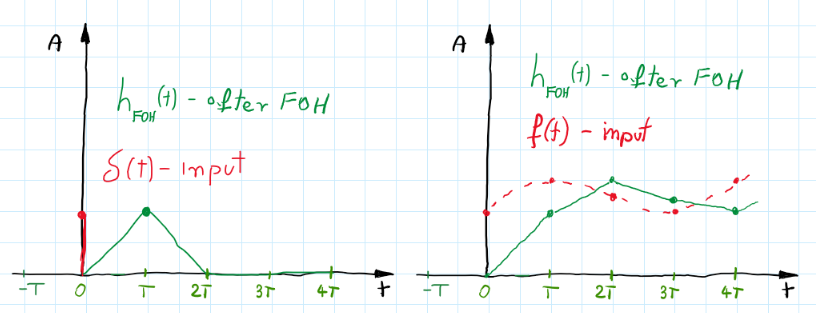 A
h_FOH(t) - after FOH
δ(t) - input
-T 0 T 2T 3T 4T t
A
h_FOH(t) - after FOH
f(t) - input
-T 0 T 2T 3T 4T t